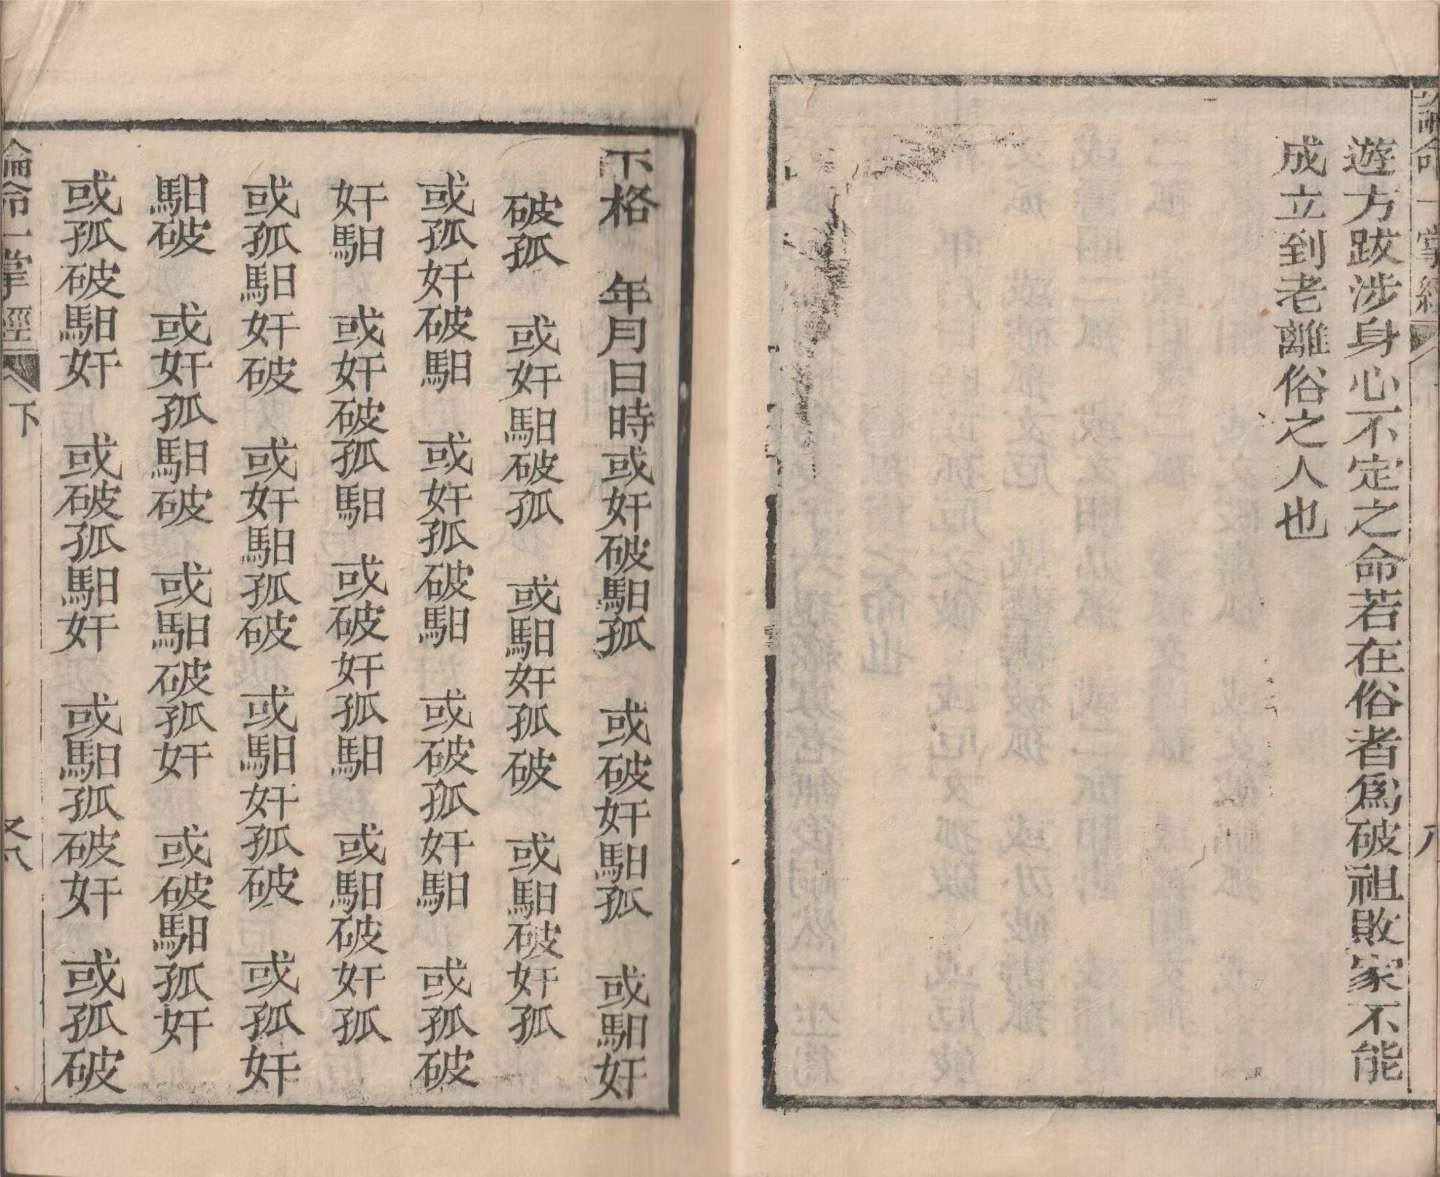 論命一掌經 下 八
遊方跋涉身心不定之命若在俗者爲破祖敗家不能
成立到老離俗之人也
下格 年月日時或奸破馹孤 或破奸馹孤 或馹奸
破孤 或奸馹破孤 或馹奸孤破 或馹破奸孤
或孤奸破馹 或奸孤破馹 或破孤奸馹 或孤破
奸馹 或奸破孤馹 或破奸孤馹 或馹破奸孤
或孤馹奸破 或奸馹孤破 或馹奸孤破 或孤奸
馹破 或奸孤馹破 或馹破孤奸 或破馹孤奸
或孤破馹奸 或破孤馹奸 或馹孤破奸 或孤破
論命一掌經 下 又八